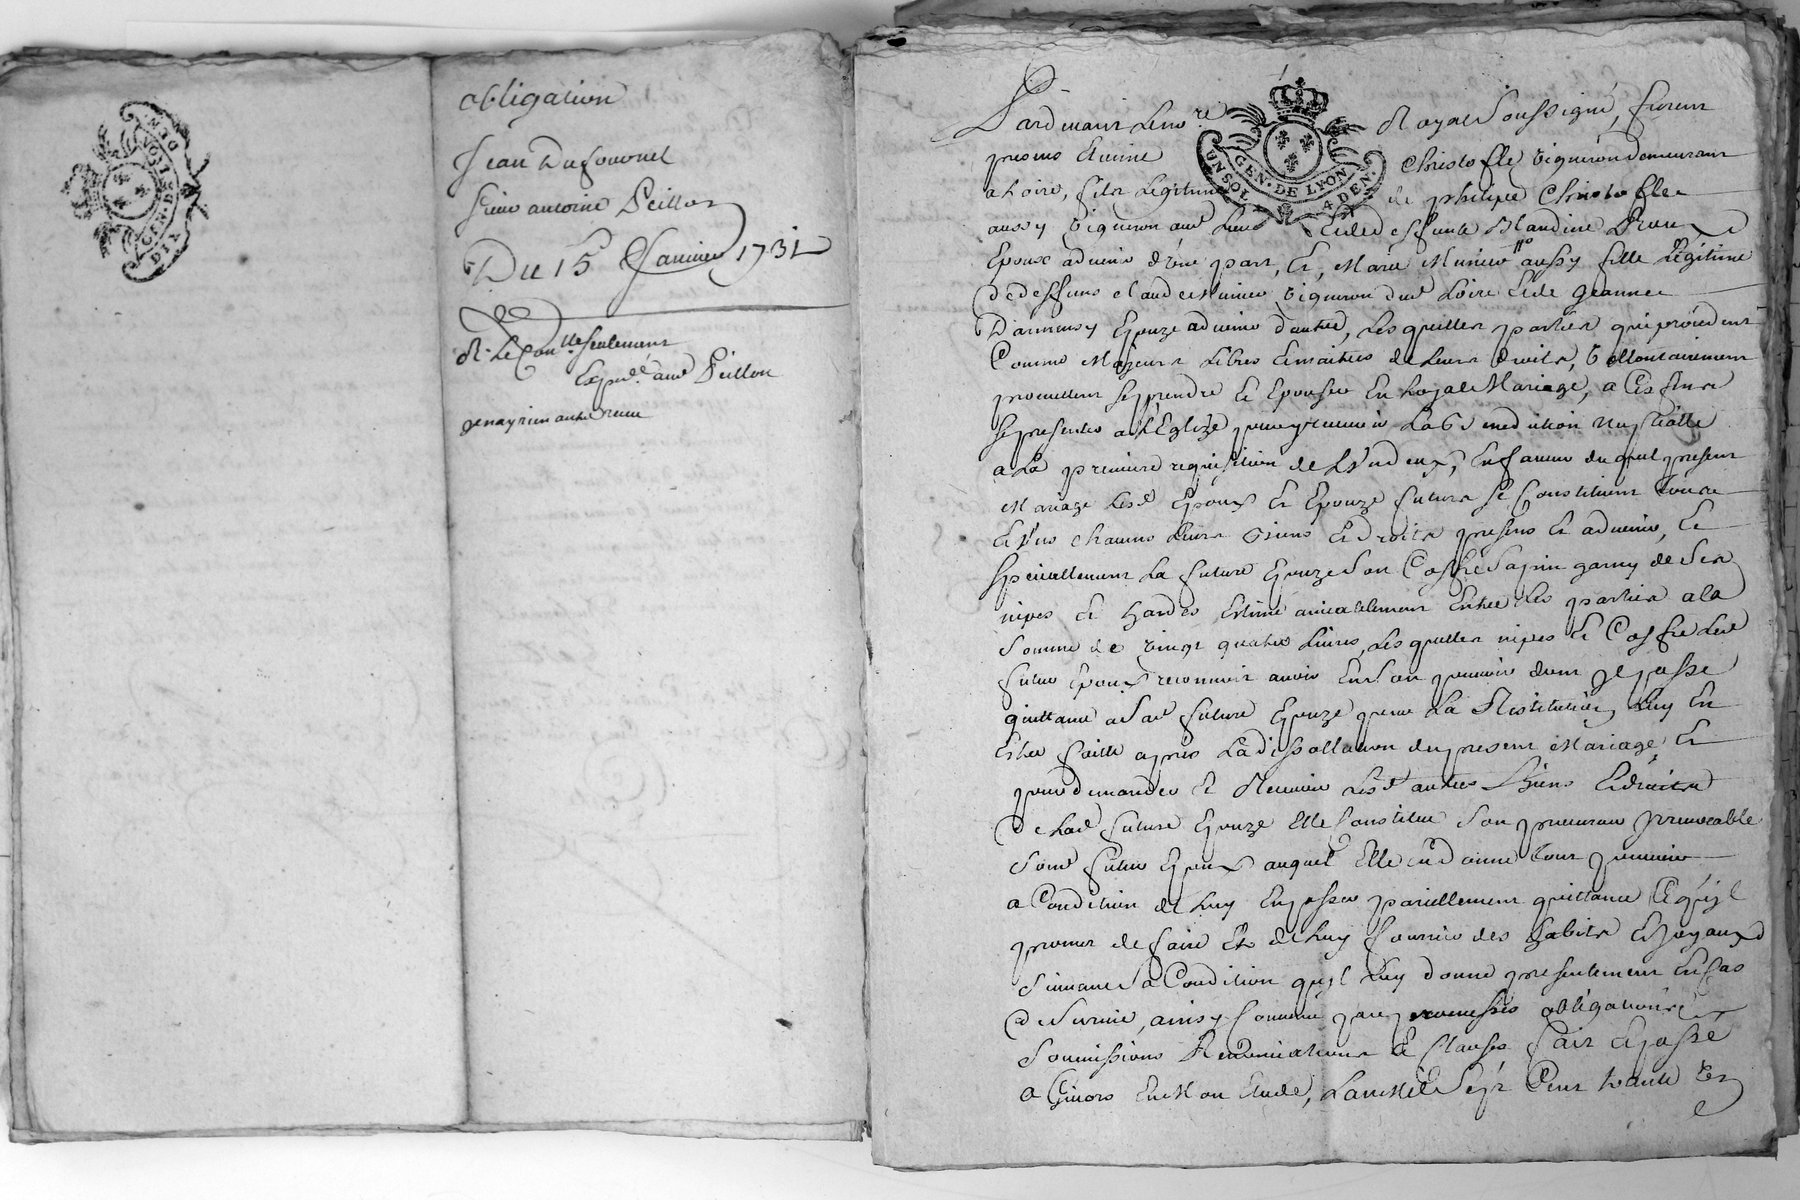 obligation
Jean Dufournel
Sieur antoine Peillon
Du 15 Janvier 1731
seulement
Expediée aud Peillon
je nay rien autre receu
DIX DEN
GEN. DE LYON
Pardevant le no.re Royal soussigné, furent
presens Christofle vigneron demeurant
a Loire, fils Legitime de philipe Christofle
aussy vigneron aud Lieu et de deffunte Blandine
Epoux advenir d'une part, Et, Marie Munier aussy fille Légitime
de deffunt claude Munier vigneron dud Loire et de Jeanne
Epouze advenir d'autre, Lesquelles parties qui procedent
Comme Majeurs Libres et maitres de Leurs droits, Vollontairement
promettent se prendre et Epouser En Loyal Mariage, a Ces fins
se presenter a L'Eglize pour y recevoir La Benediction Nuptialle
a La premiere requisition de L'un deux, En faveur duquel present
Mariage Lesd Epoux et Epouze futurs se Constituent tous
et uns chacuns Leurs biens et droits presens et advenir, et
speciallement La future Epouze son Coffre sapin garny de ses
nipes et hardes Estimé amicablement Entre Les parties a la
somme de vingt quatre Livres, Lesquelles nipes et Coffre Led
futur Epoux reconnoit avoir En son pouvoir dont Il passe
quittance a Sad future Epouze pour La Restitution Luy En
Estre faitte apres La dissollution du present Mariage, Et
pour demander et Recevoir Lesd autres biens et droits
de Lad future Epouze Elle Constitue son procureur Irrevocable
Sond futur Epoux auquel Elle en donne tout pouvoir
a Condition de Luy En passer pareillement quittance Ce qu'il
promet de faire Et de Luy fournir des habits et Joyaux
suivant sa Condition qu'il Luy donne presentement En Cas
de survie, ainsy Convenu par promesses obligations
soumissions Renonciations et Clauses fait et passé
a Givors En Mon Etude, L'an Mil sept Cent trante Un
GEN. DE LYON
UN SOL 4 DEN.